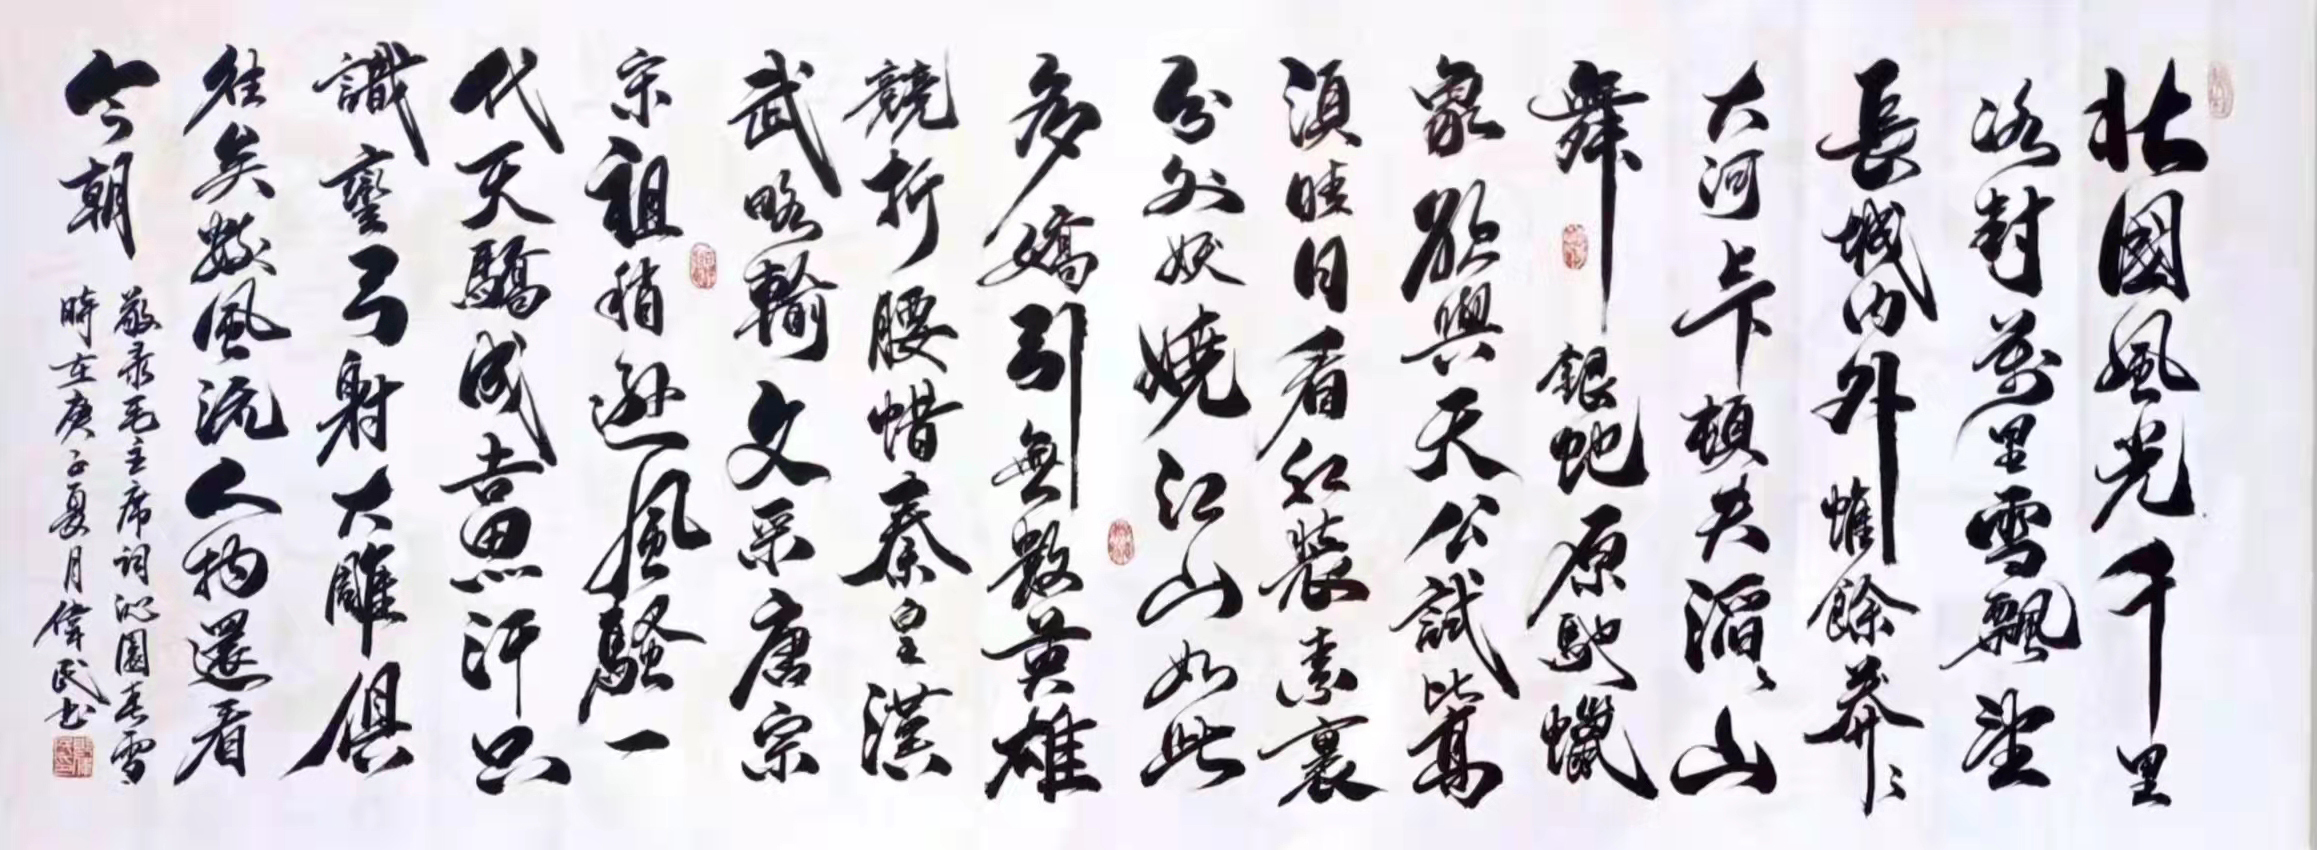 北國風光千里
冰封萬里雪飄望
長城内外惟餘莽々
大河上下頓失滔々山
舞銀蛇原馳蠟
象欲與天公試比高
須晴日看紅裝素裹
分外妖嬈江山如此
多嬌引無數英雄
競折腰惜秦皇漢
武略輸文采唐宗
宋祖稍遜風騷一
代天驕成吉思汗只
識彎弓射大雕俱
往矣數風流人物還看
今朝
敬录毛主席词沁園春雪
時在庚子夏月偉民书